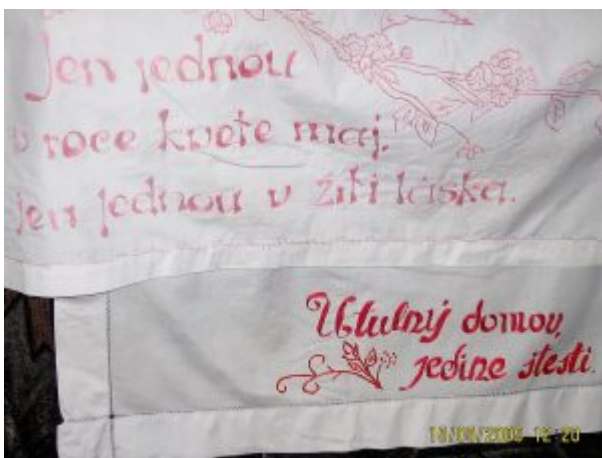 Jen jednou
v roce kvete maj.
Jen jednou v žiti láska.
Utulný domov,
jedine štesti.
12:20